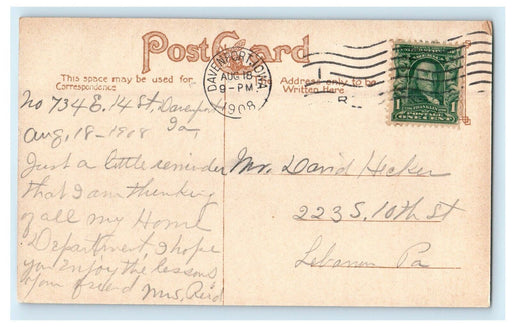 Post Card
This space may be used for
Correspondence
Address only to be
Written Here
DAVENPORT, IOWA
AUG 18
9-PM
1908
1
1
POSTAGE
ONE CENT
No 734 E. 14 St. Davenport
Ia
Aug, 18-1908
Just a little reminder
that I am thinking
of all my Home
Department, I hope
you Enjoy the lessons
your friend Mrs. Reid
Mr. David Hicker
223 S. 10th St
Lebanon Pa